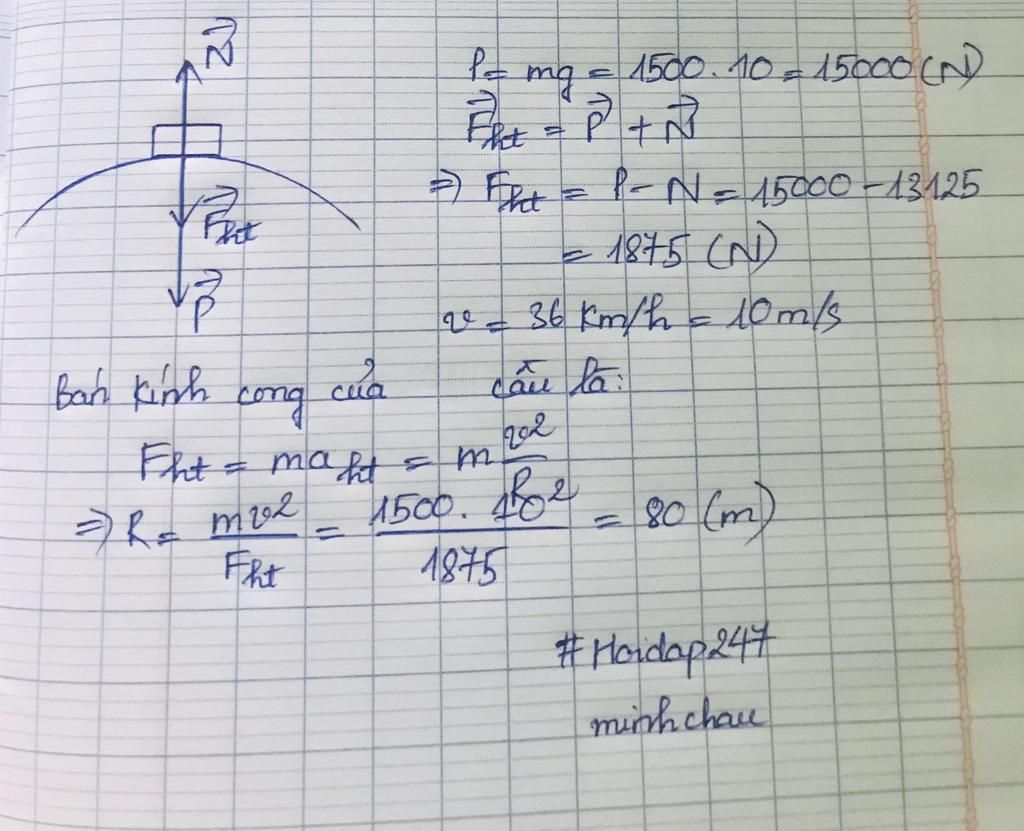 N⃗
F⃗ht
P⃗
P = mg = 1500.10 = 15000 (N)
F⃗ht = P⃗ + N⃗
=> Fht = P - N = 15000 - 13125
= 1875 (N)
v = 36 km/h = 10 m/s
Bán kính cong của cầu là:
Fht = maht = m v²/R
=> R = mv²/Fht = 1500.10²/1875 = 80 (m)
#Hoidap247
minhchau